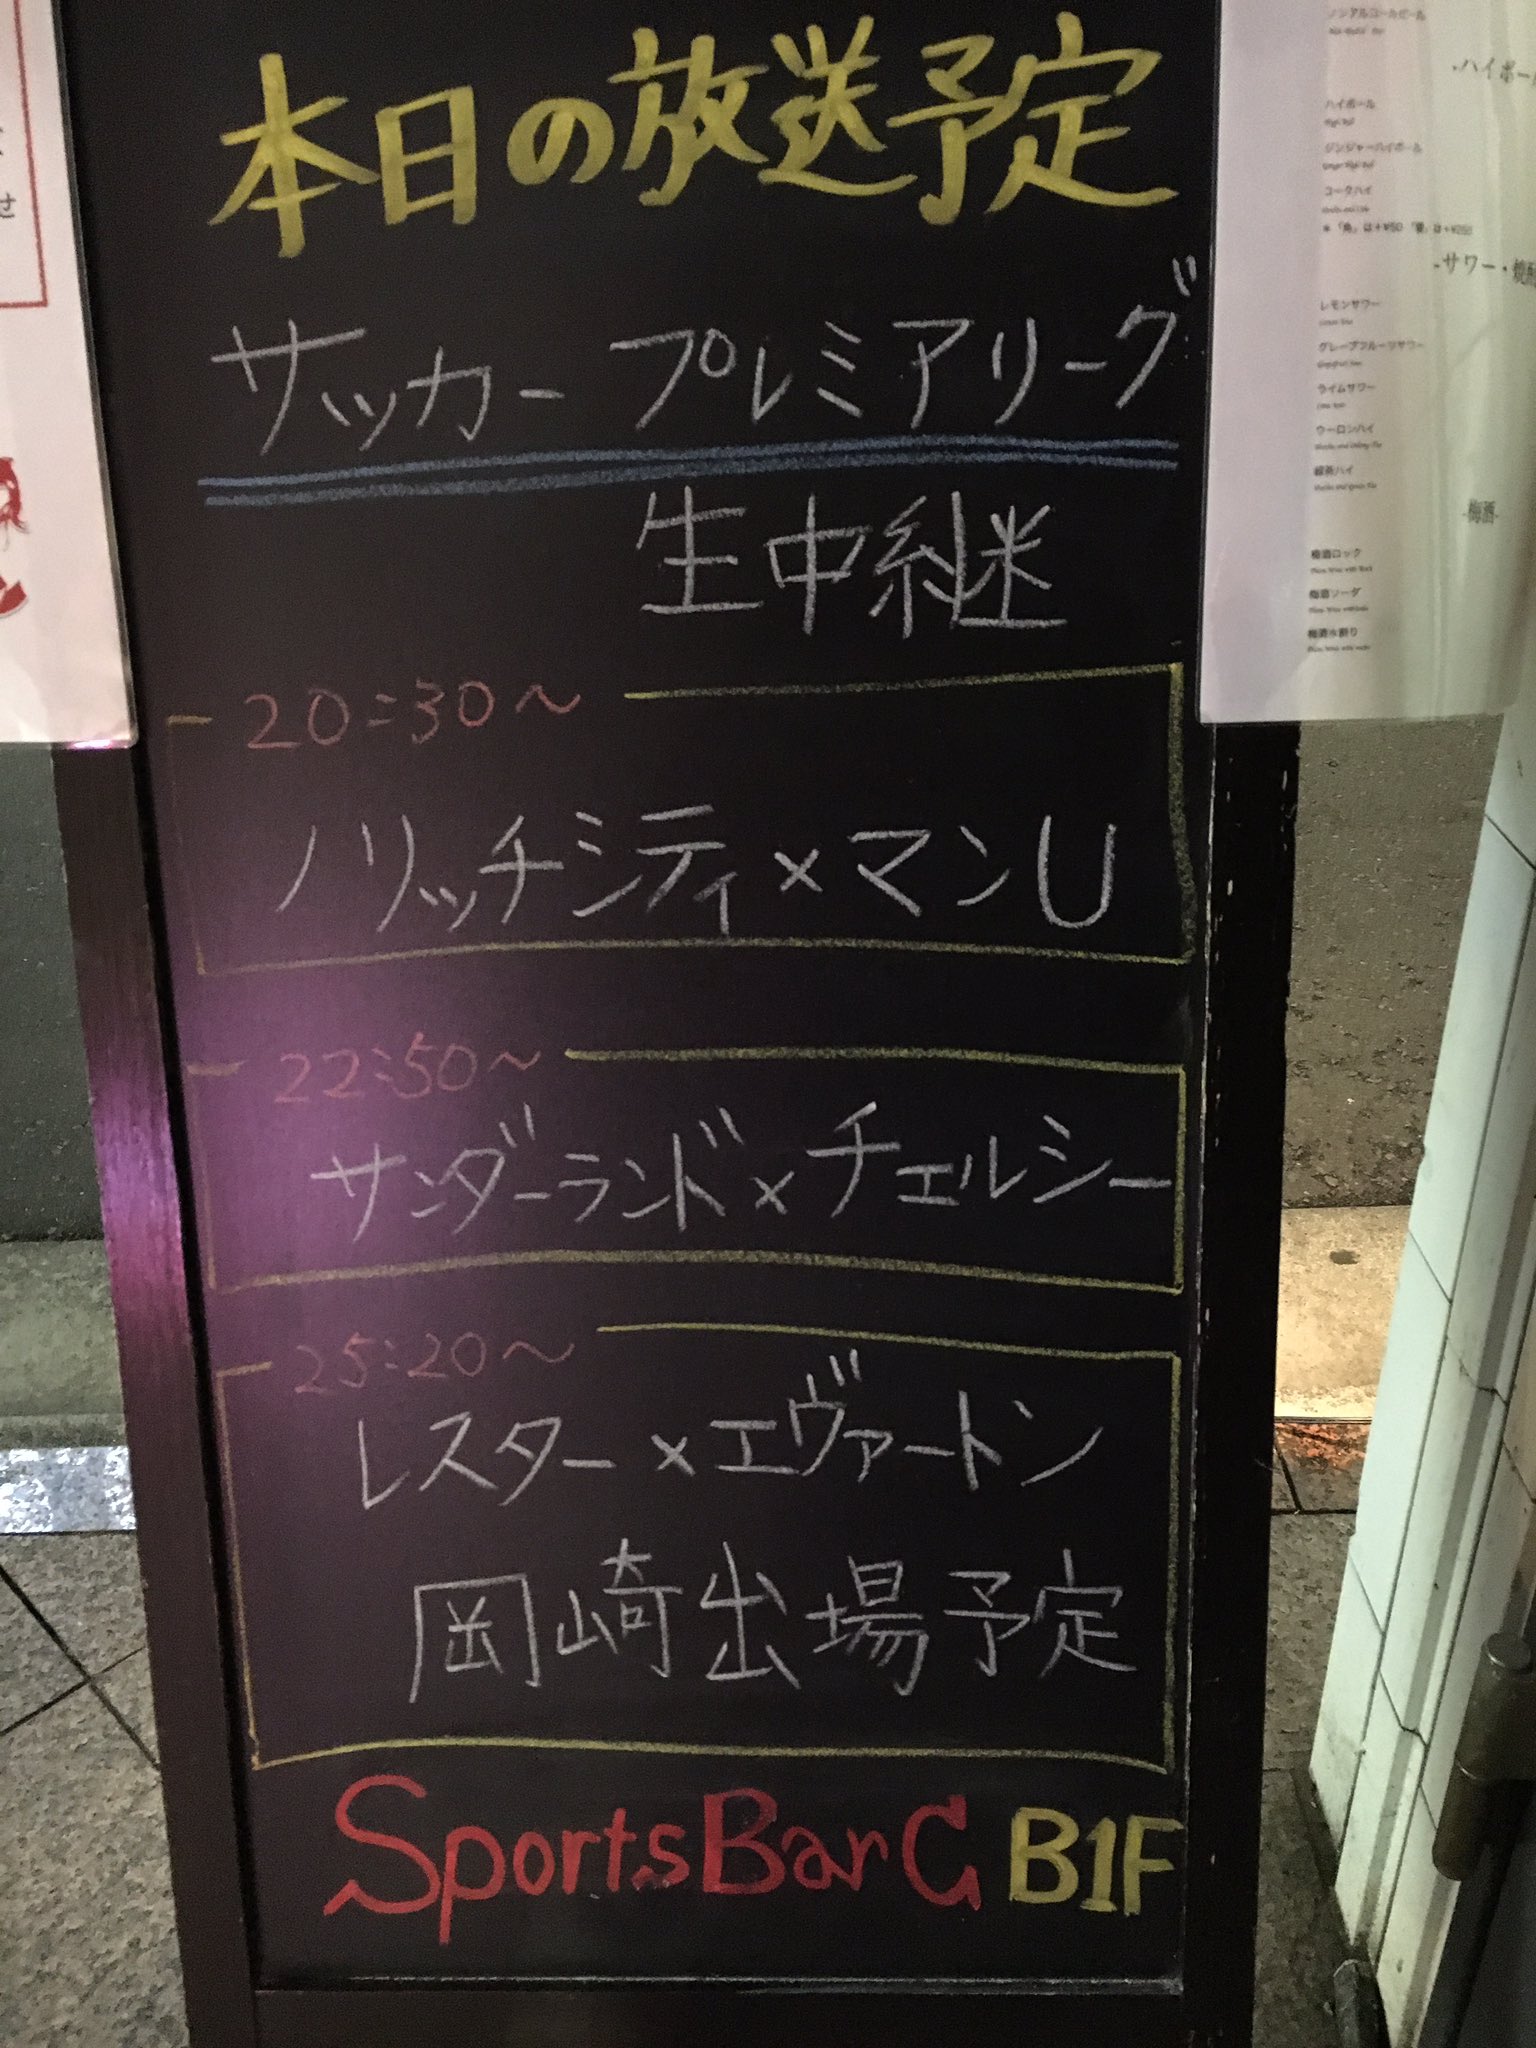 本日の放送予定
サッカー プレミアリーグ
生中継
20:30〜
ノリッチシティ×マンU
22:50〜
サンダーランド×チェルシー
25:20〜
レスター×エヴァートン
岡崎出場予定
SportsBarG B1F
せ
ノンアルコールビール
-ハイボー
ハイボール
ジンジャーハイボール
コークハイ
-サワー・焼酎
レモンサワー
グレープフルーツサワー
ライムサワー
ウーロンハイ
緑茶ハイ
-梅酒-
梅酒ロック
梅酒ソーダ
梅酒水割り